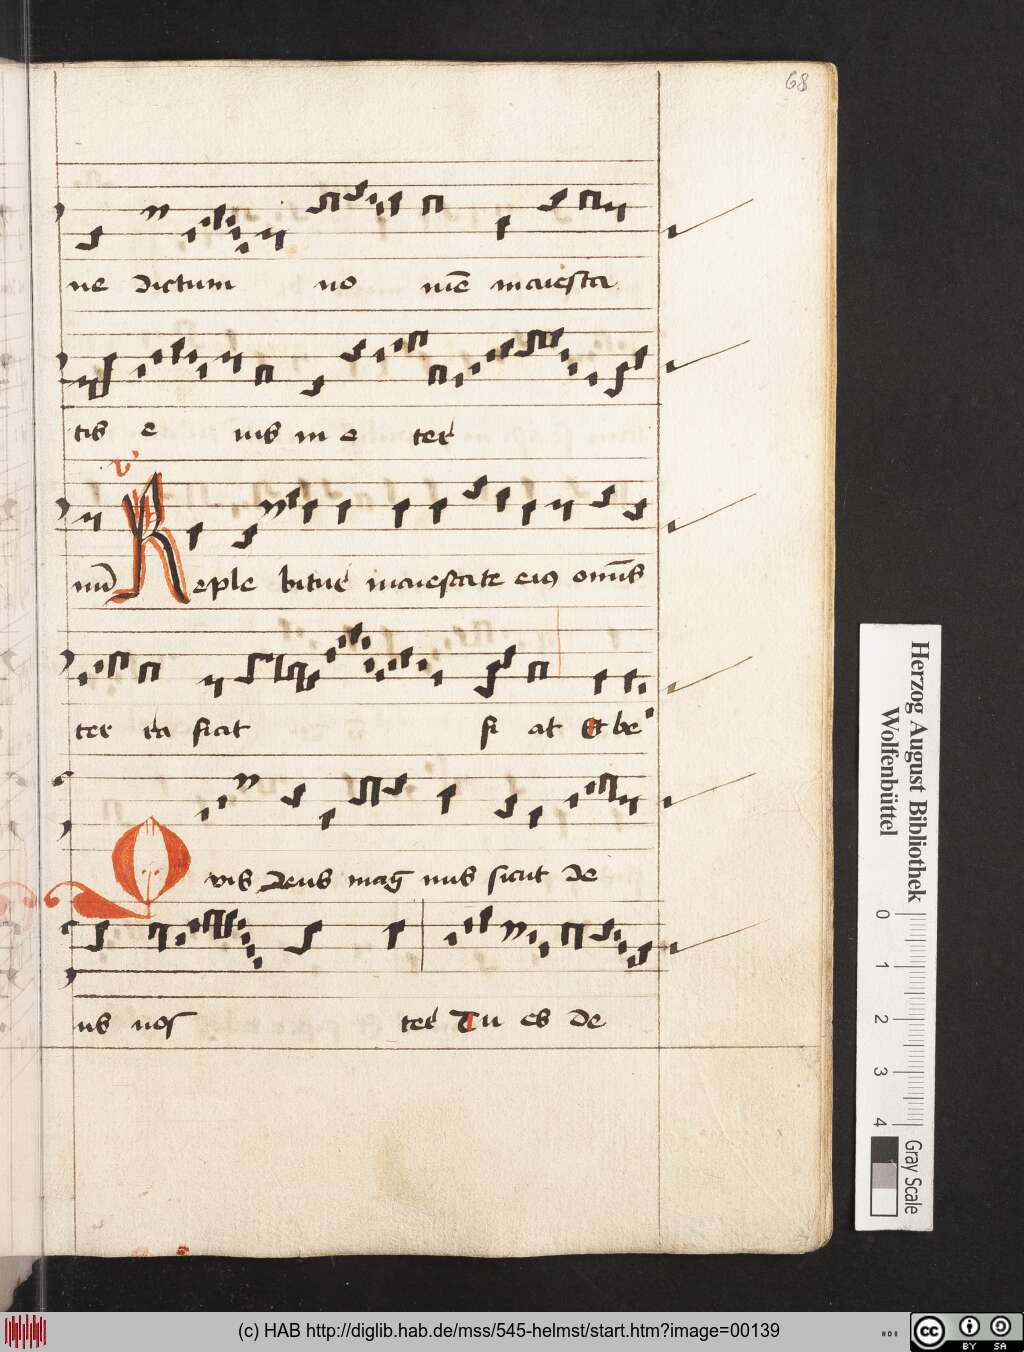 68
ne dictum no mē maiesta
tis e ius in e ter
nū
v
Reple bitur maiestate eiꝯ omīs
ter ra fiat fi at Et be
Quis deus mag nus sicut de
us nos ter Tu es de
Herzog August Bibliothek
Wolfenbüttel
0 1 2 3 4
Gray Scale
(c) HAB http://diglib.hab.de/mss/545-helmst/start.htm?image=00139
cc BY SA